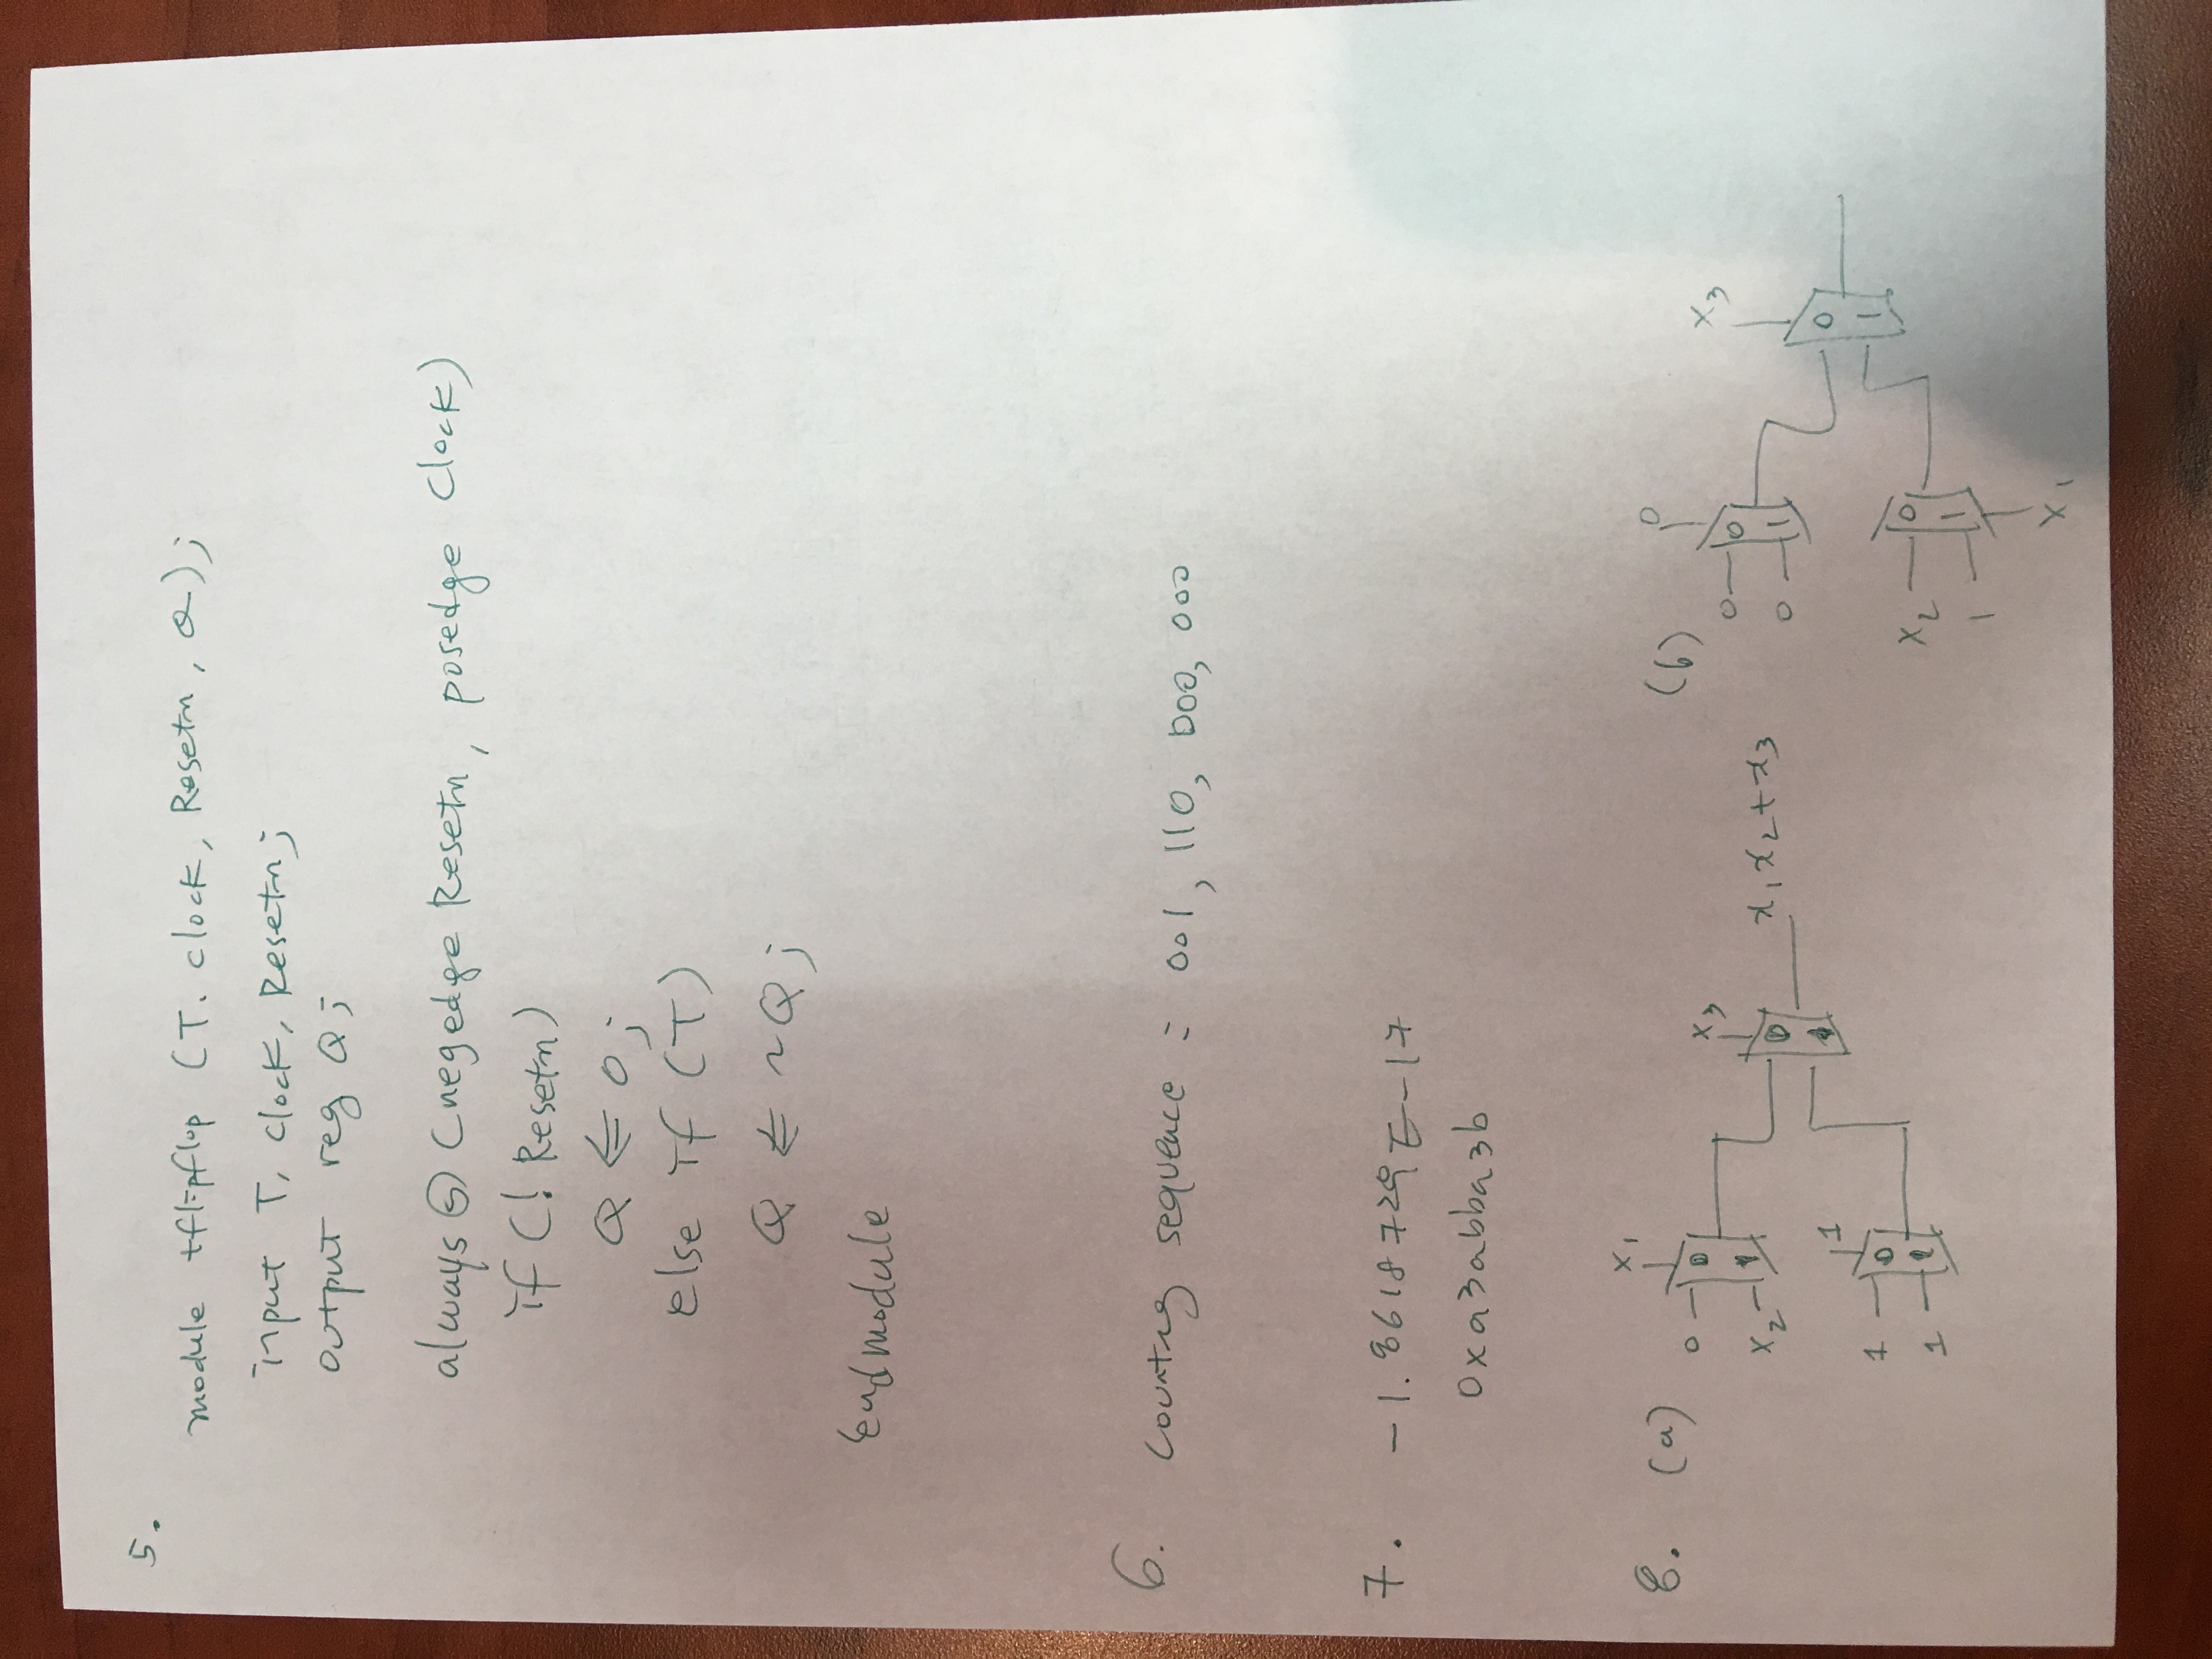 5.
module tflipflop (T. clock, Resetn, Q);
input T, Clock, Resetn;
output reg Q;
always @ (negedge Resetn, posedge Clock)
if (! Resetn)
Q <= 0;
else if (T)
Q <= ~Q;
endmodule
6. Counting sequence : 001, 110, 000, 000
7. -1.8618729E-17
0xa3abba3b
8. (a)
x1
0 0
x2 1
x3
0
1
x1x2+x3
1
1 0
1 1
(b)
0
0 0
0 1
x3
0
1
x2 0
1 1
x1